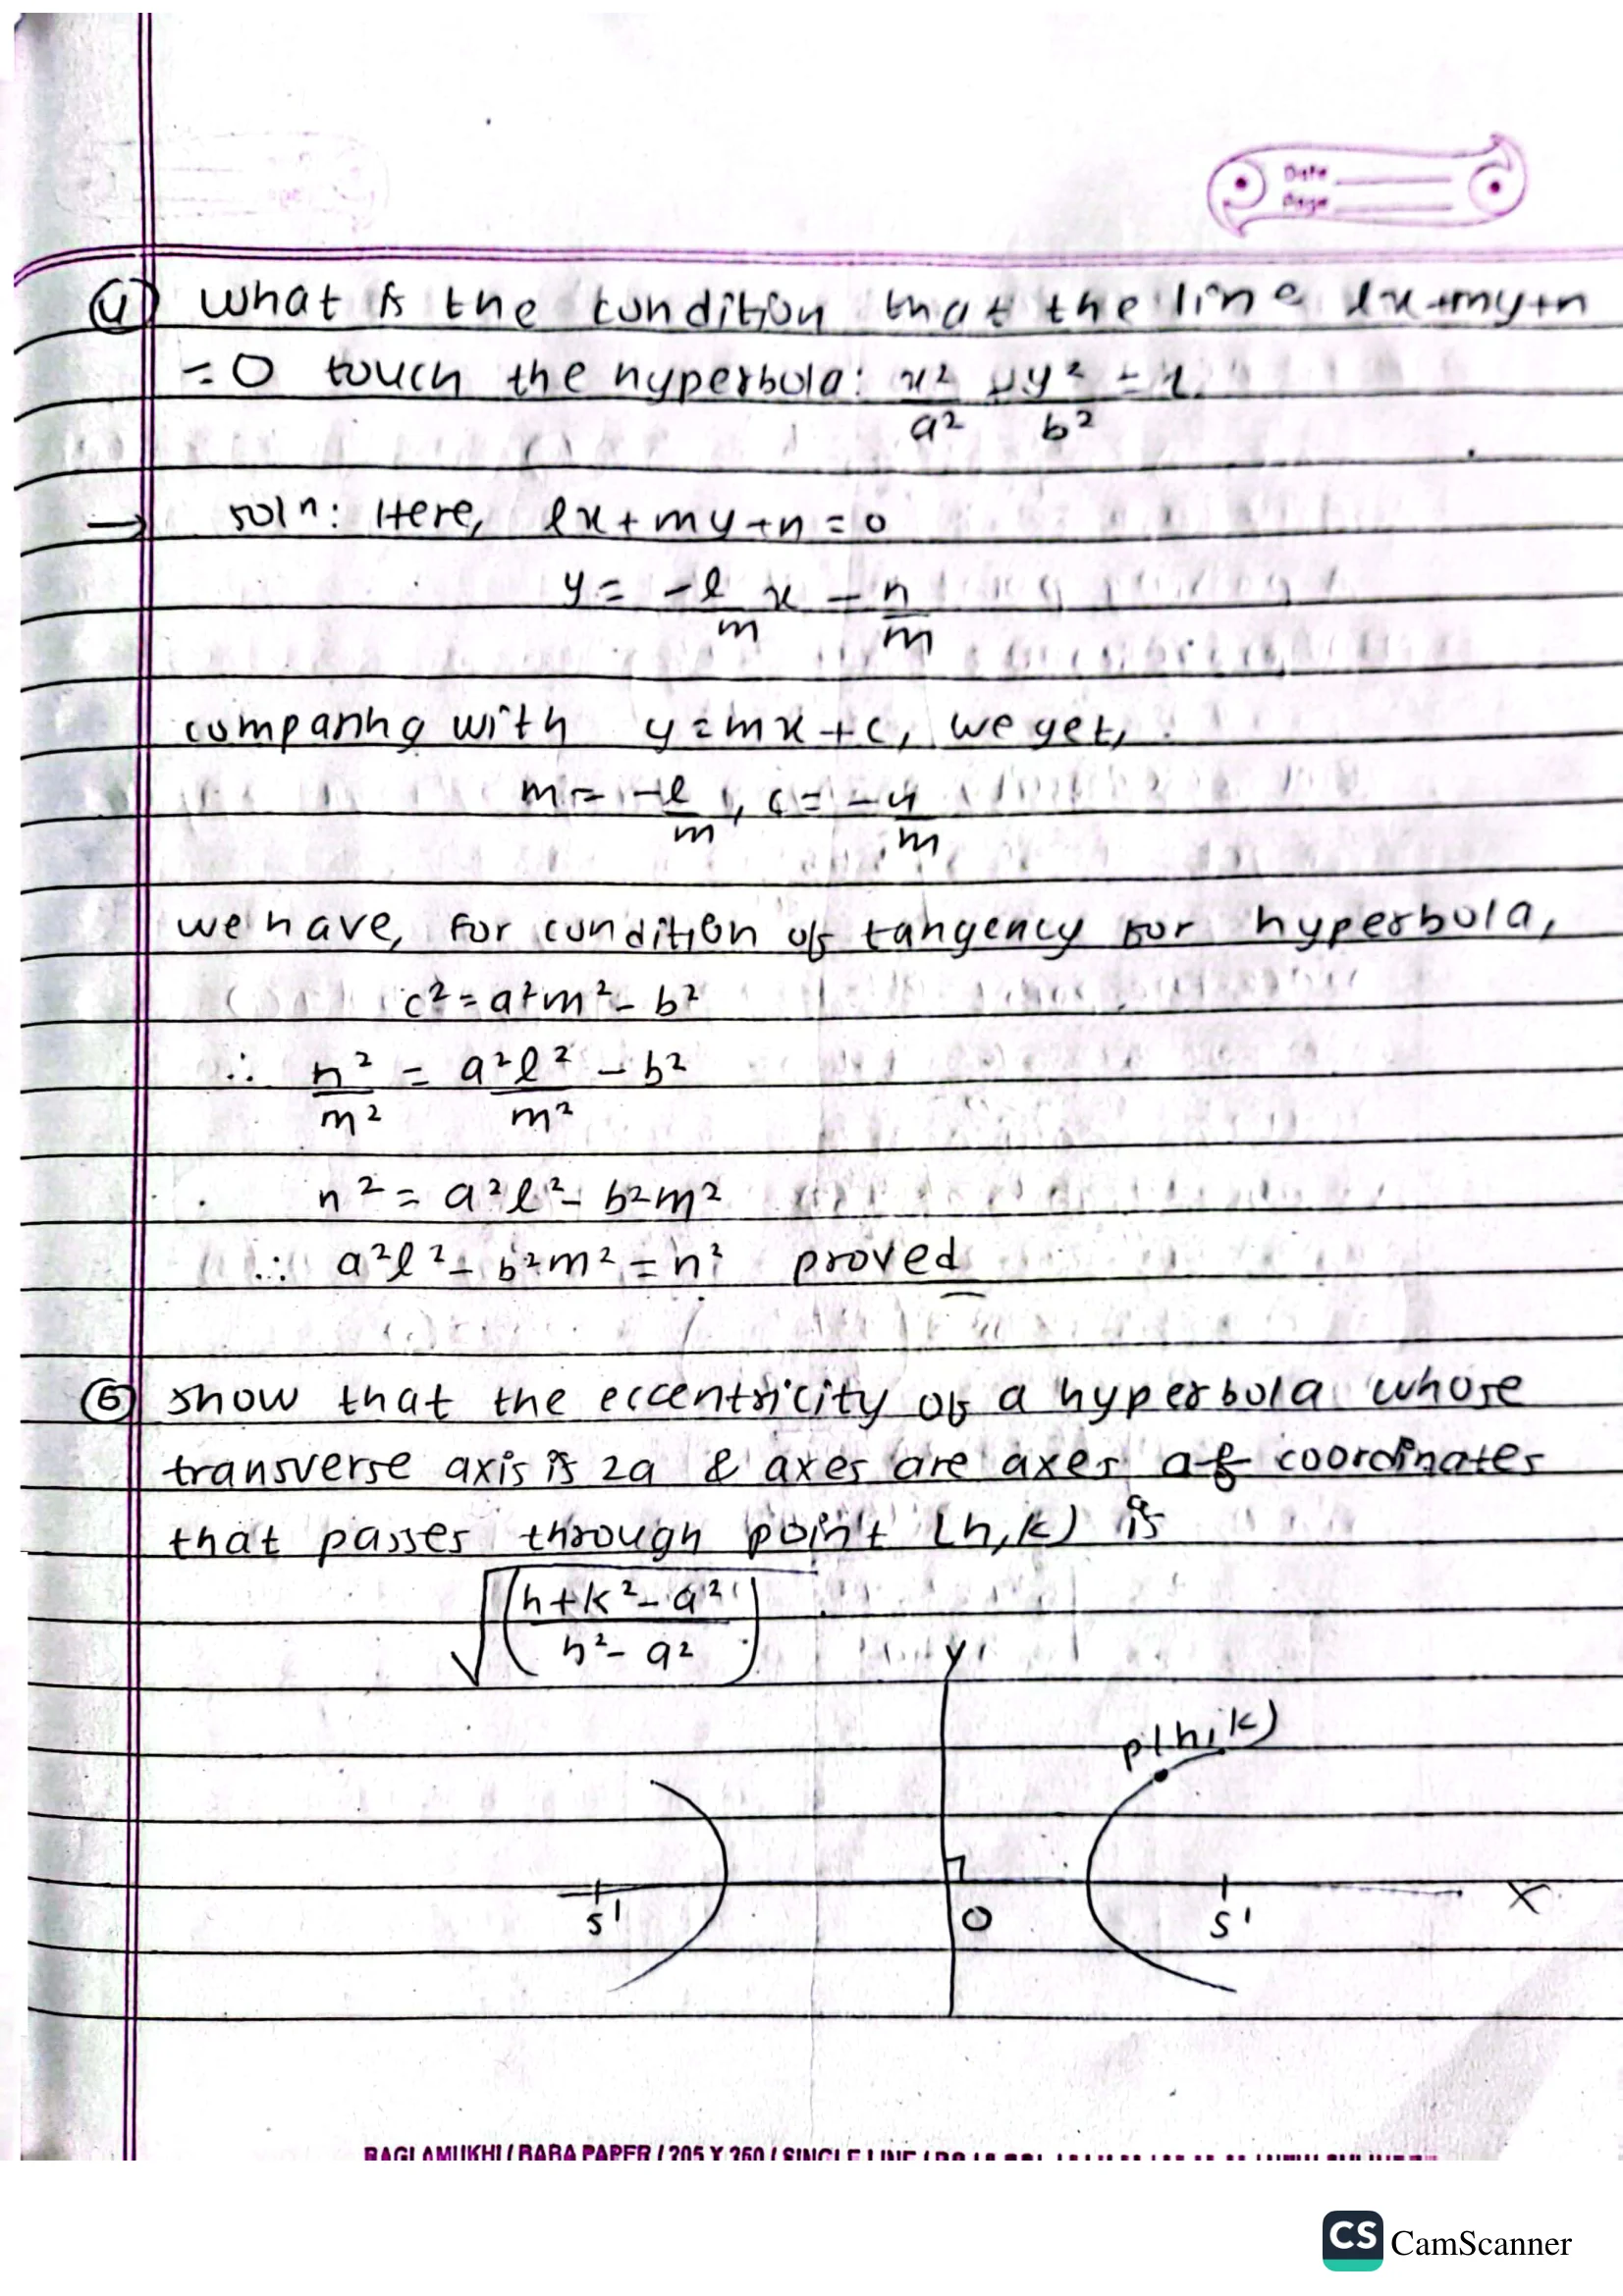 Date
Page
④ what is the condition that the line lx+my+n
=0 touch the hyperbola: x²/a² - y²/b² = 1.
→ soln: Here, lx+my+n=0
y = -l/m x - n/m
comparing with y=mx+c, we get,
m = -l/m, c = -n/m
we have, for condition of tangency for hyperbola,
c² = a²m² - b²
∴ n²/m² = a²l²/m² - b²
n² = a²l² - b²m²
∴ a²l² - b²m² = n² proved
⑤ show that the eccentricity of a hyperbola whose
transverse axis is 2a & axes are axes of coordinates
that passes through point (h,k) is
√((h+k²-a²)/(h²-a²))
y
p(h,k)
s' O s' X
CS CamScanner